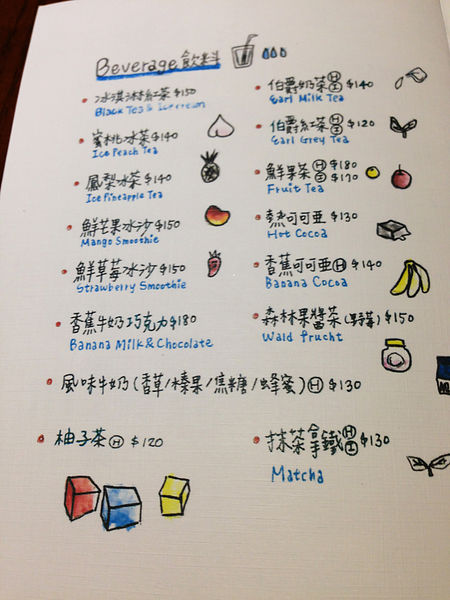 Beverage 飲料
冰淇淋紅茶 $150
Black Tea & Icecream
蜜桃冰茶 $140
Ice Peach Tea
鳳梨冰茶 $140
Ice Pineapple Tea
鮮芒果冰沙 $150
Mango Smoothie
鮮草莓冰沙 $150
Strawberry Smoothie
香蕉牛奶巧克力 $180
Banana Milk & Chocolate
伯爵奶茶 Ⓗ Ⓘ $140
Earl Milk Tea
伯爵紅茶 Ⓗ Ⓘ $120
Earl Grey Tea
鮮果茶 Ⓗ $180 Ⓘ $170
Fruit Tea
熱可可亞 $130
Hot Cocoa
香蕉可可亞 Ⓗ $140
Banana Cocoa
森林果醬茶 $150
Wald Frucht
風味牛奶 (香草/榛果/焦糖/蜂蜜) Ⓗ $130
柚子茶 Ⓗ $120
抹茶拿鐵 Ⓗ Ⓘ $130
Matcha